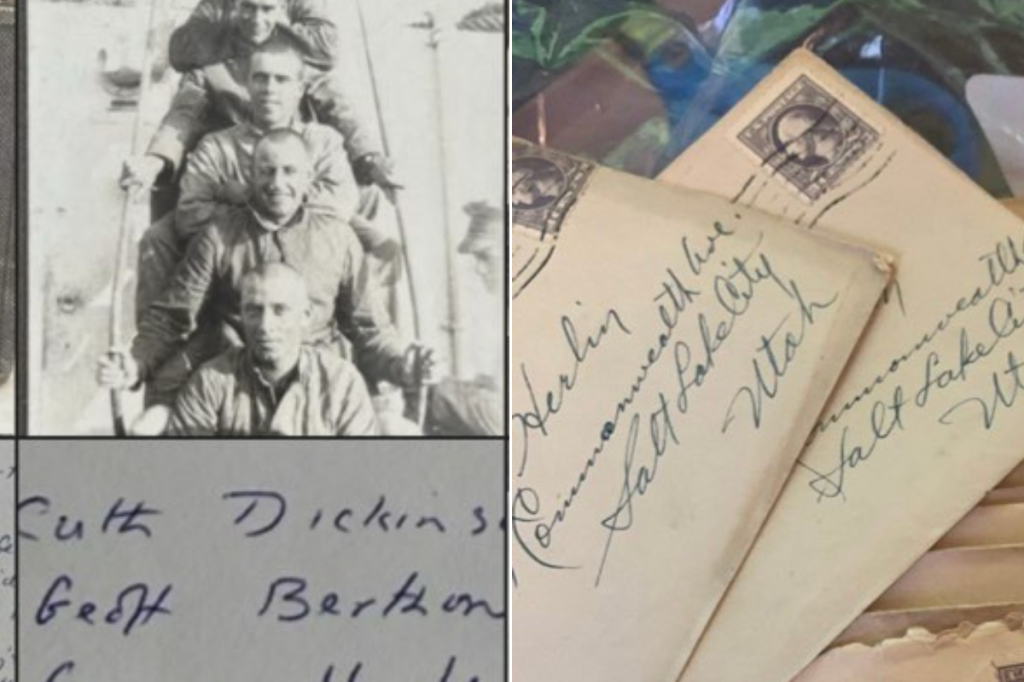 Cuth Dickins
Geoff Berthon
Herlin
Commonwealth Ave.
Salt Lake City
Utah
mmonwealth
Salt Lake Ci
Ut